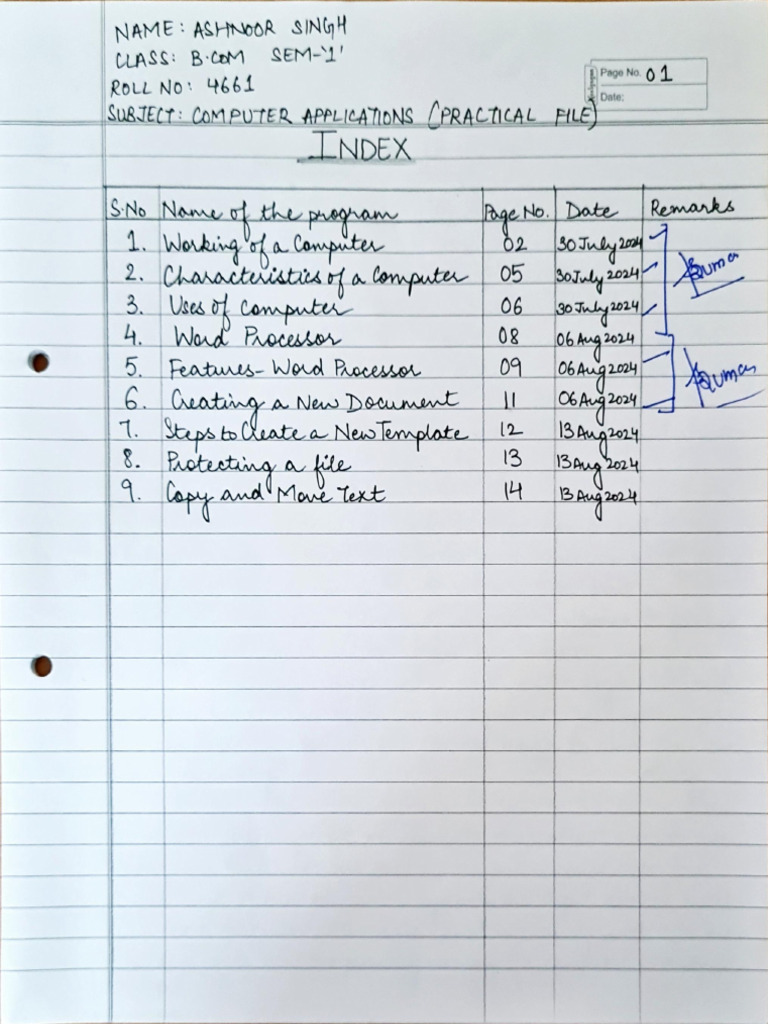 NAME: ASHNOOR SINGH
CLASS: B.COM SEM-'1'
ROLL NO: 4661
Page No. 01
Date:
SUBJECT: COMPUTER APPLICATIONS (PRACTICAL FILE)
INDEX
S.No Name of the program Page No. Date Remarks
1. Working of a Computer 02 30 July 2024
2. Characteristics of a Computer 05 30 July 2024
3. Uses of Computer 06 30 July 2024
4. Word Processor 08 06 Aug 2024
5. Features- Word Processor 09 06 Aug 2024
6. Creating a New Document 11 06 Aug 2024
7. Steps to Create a New Template 12 13 Aug 2024
8. Protecting a file 13 13 Aug 2024
9. Copy and Move Text 14 13 Aug 2024